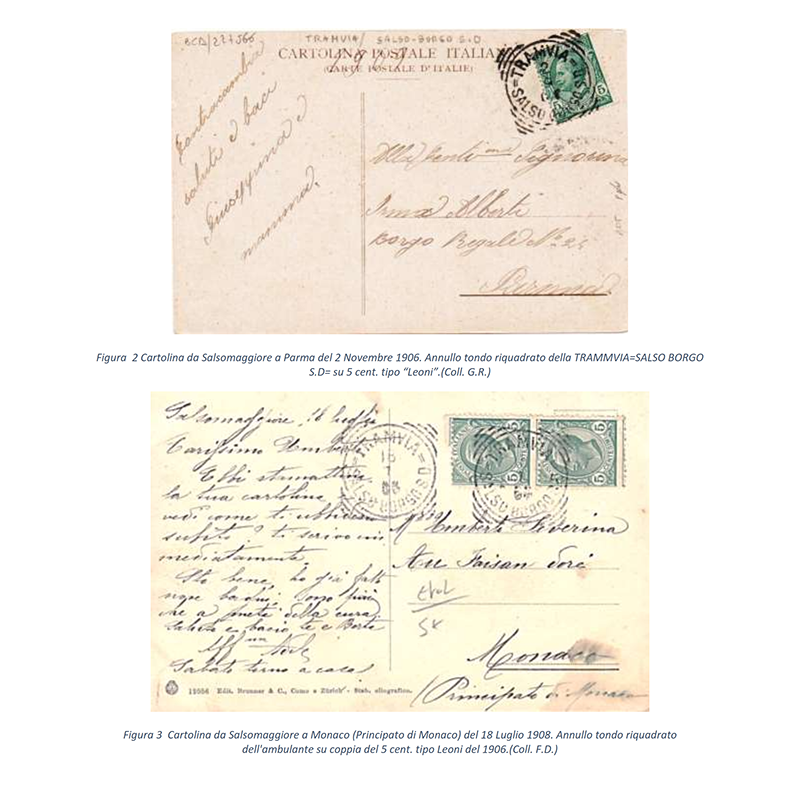 BCA/227566
TRAMVIA/ SALSO-BORGO S.D
CARTOLINA POSTALE ITALIANA
(CARTE POSTALE D'ITALIE)
=TRAMVIA=
SALSO BORGO S.D
5
5
Contraccambia
saluti e baci
Giuseppina e
mamma.
Alla Gent.ma Signorina
Irma Alberti
Borgo Regale No 25
Parma
Figura 2 Cartolina da Salsomaggiore a Parma del 2 Novembre 1906. Annullo tondo riquadrato della TRAMMVIA=SALSO BORGO
S.D= su 5 cent. tipo “Leoni”.(Coll. G.R.)
Salsomaggiore, 18 luglio
Carissimo Umberto
Ebbi stamattina
la tua cartolina
vedi come ti ubbidisco
subito? ti scrivo im
mediatamente.
Sto bene, ho già fatt
cura.
Saluti e bacio te e
Sabato torno a casa
=TRAMVIA=
18
7
08
SALSO BORGO S.D
=TRAMVIA=
SALSO BORGO S.D
5
5
Umberto Severina
Au Faisan doré
Monaco
(Principato di Monaco
15956 Edit. Brunner & C., Como e Zürich - Stab. eliografico.
Figura 3 Cartolina da Salsomaggiore a Monaco (Principato di Monaco) del 18 Luglio 1908. Annullo tondo riquadrato
dell'ambulante su coppia del 5 cent. tipo Leoni del 1906.(Coll. F.D.)